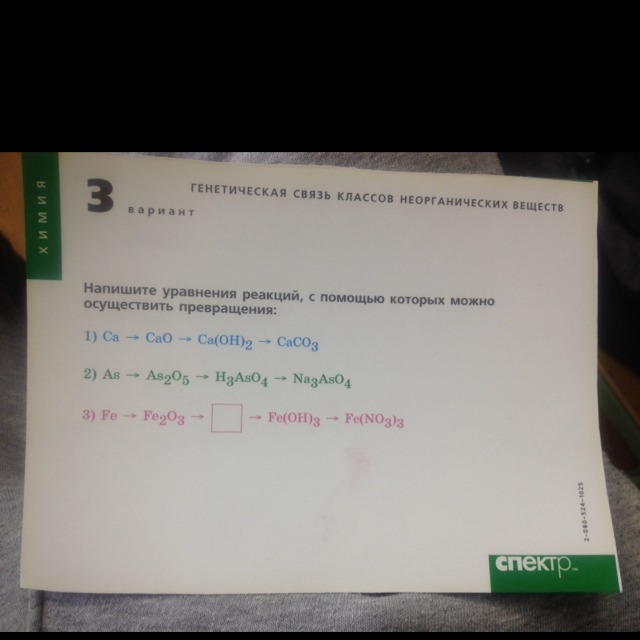 ХИМИЯ
3
вариант
ГЕНЕТИЧЕСКАЯ СВЯЗЬ КЛАССОВ НЕОРГАНИЧЕСКИХ ВЕЩЕСТВ
Напишите уравнения реакций, с помощью которых можно
осуществить превращения:
1) Ca → CaO → Ca(OH)₂ → CaCO₃
2) As → As₂O₅ → H₃AsO₄ → Na₃AsO₄
3) Fe → Fe₂O₃ → □ → Fe(OH)₃ → Fe(NO₃)₃
2-080-524-1025
спектр